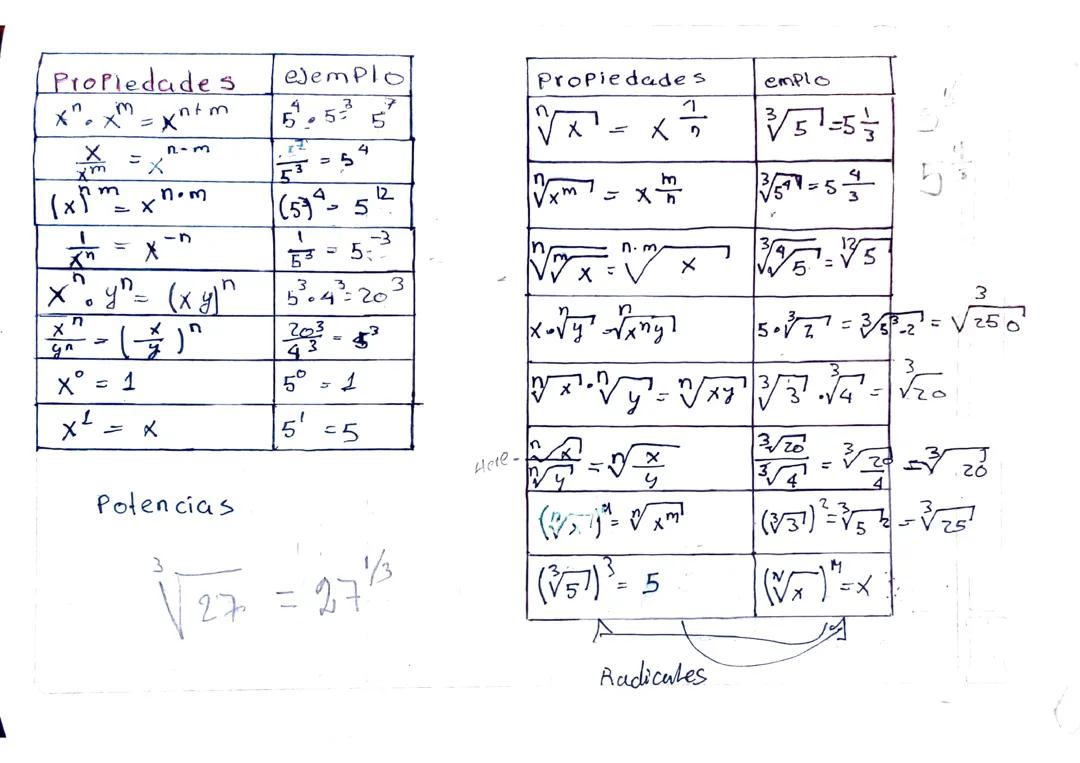 Propiedades ejemplo
xⁿ · xᵐ = xⁿ⁺ᵐ 5⁴ · 5³ 5⁷
x/xᵐ = xⁿ⁻ᵐ /5³ = 5⁴
(x)ⁿᵐ = xⁿ·ᵐ (5³)⁴ = 5¹²
1/xⁿ = x⁻ⁿ 1/5³ = 5⁻³
xⁿ · yⁿ = (xy)ⁿ 5³ · 4³ = 20³
xⁿ/yⁿ = (x/y)ⁿ 20³/4³ = 5³
x⁰ = 1 5⁰ = 1
x¹ = x 5¹ = 5
Potencias
³√27 = 27^1/3
Propiedades emplo
ⁿ√x = x 1/n ³√5 = 5 1/3
ⁿ√xᵐ = x m/n ³√5⁴ = 5 4/3
ⁿ√ᵐ√x = ⁿ·ᵐ√x ³√⁴√5 = ¹²√5
x · ⁿ√y = ⁿ√xⁿy 5 · ³√2 = ³√5³-2 = ³√250
ⁿ√x · ⁿ√y = ⁿ√xy ³√3 · ³√4 = ³√20
Here - ⁿ√x/ⁿ√y = ⁿ√x/y ³√20/³√4 = ³√20/4 = ³√20
= ⁿ√xᵐ (³√3)² = ³√5² = ³√25
(³√5)³ = 5 (ᴺ√x)ᴺ = x
Radicales